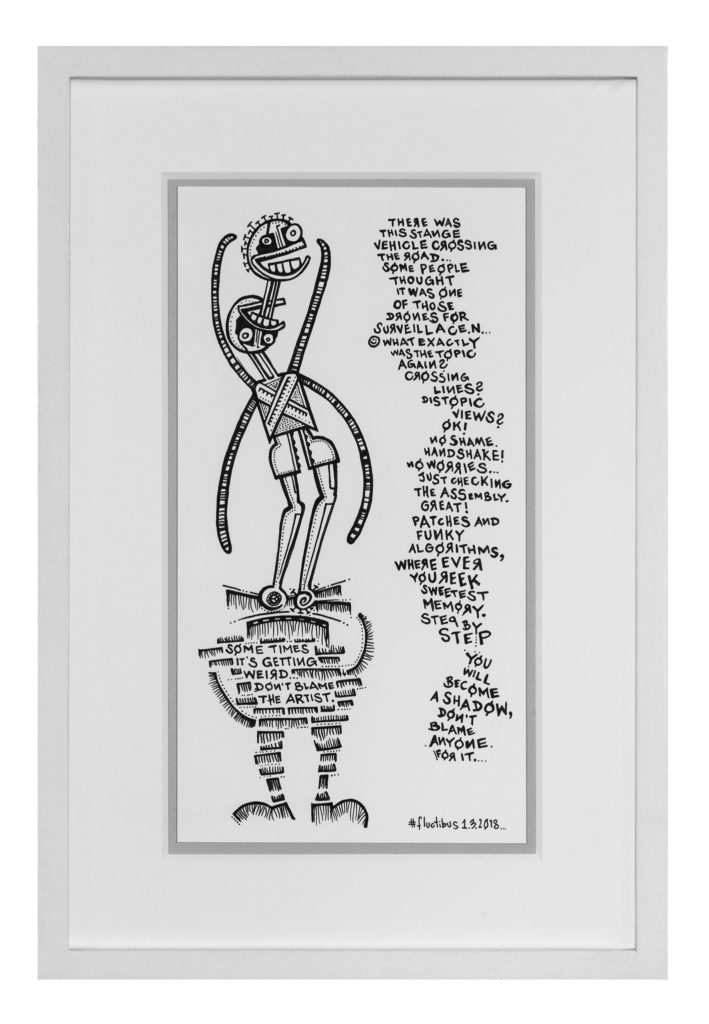 THERE WAS
THIS STANGE
VEHICLE CROSSING
THE ROAD...
SOME PEOPLE
THOUGHT
IT WAS ONE
OF THOSE
DRONES FOR
SURVEILLACE.N...
WHAT EXACTLY
WAS THE TOPIC
AGAIN?
CROSSING
LINES?
DISTOPIC
VIEWS?
OK!
NO SHAME.
HANDSHAKE!
NO WORRIES...
JUST CHECKING
THE ASSEMBLY.
GREAT!
PATCHES AND
FUNKY
ALGORITHMS,
WHERE EVER
YOU REEK
SWEETEST
MEMORY.
STEP BY
STE!P
YOU
WILL
BECOME
A SHADOW,
DON'T
BLAME
ANYONE.
FOR IT....
SOME TIMES
IT'S GETTING
WEIRD...
DON'T BLAME
THE ARTIST.
#fluctibus 1.3.2018...